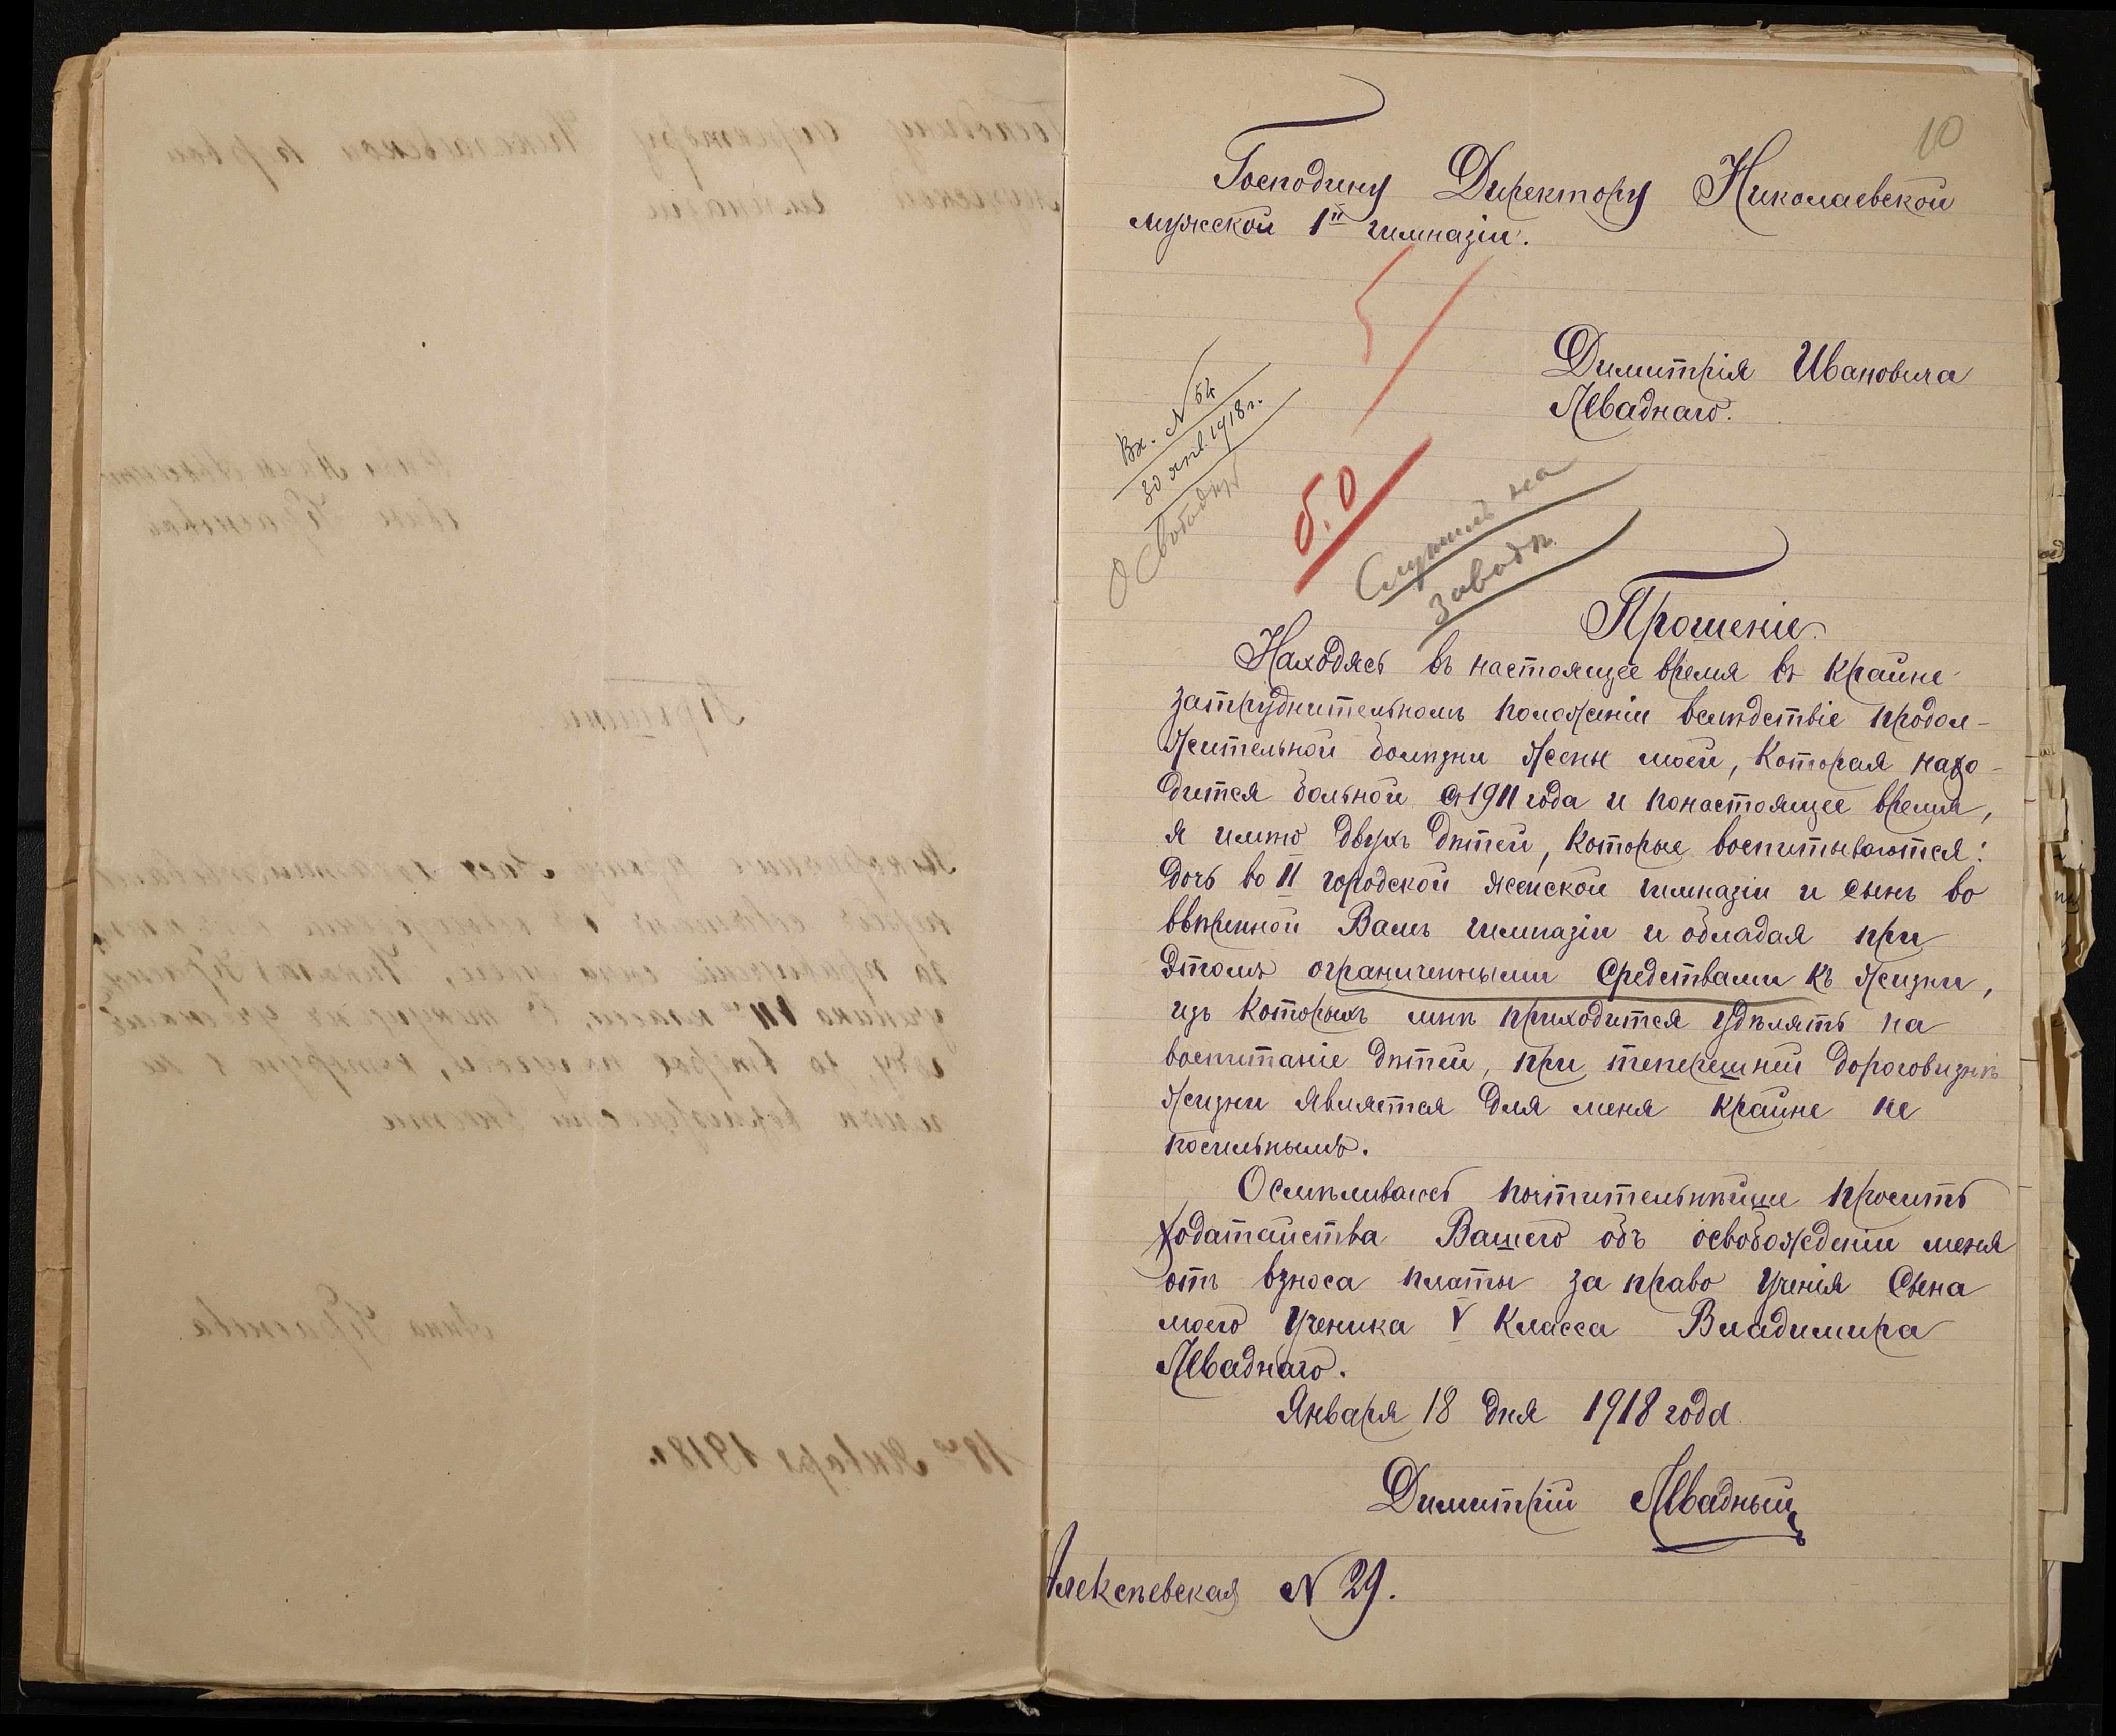 10
Господину Директору Николаевской
мужской 1й гимназіи.
5
Димитрія Ивановича
Левадного.
Вх. N 54
30 янв. 1918 г.
Освободить
5.0
Служить на
заводѣ.
Прошеніе.
Находясь въ настоящее время въ крайне
затруднительномъ положеніи вслѣдствіе продол-
жительной болѣзни жены моей, которая нахо-
дится больной съ 1911 года и понастоящее время,
я имѣю двухъ дѣтей, которые воспитываются:
дочь во II городской женской гимназіи и сынъ во
ввѣренной Вамъ гимназіи и обладая при
этомъ ограниченными средствами къ жизни,
изъ которыхъ мнѣ приходится удѣлять на
воспитаніе дѣтей, при теперешней дороговизнѣ
жизни является для меня крайне не
посильнымъ.
Осмѣливаюсь почтительнѣйше просить
ходатайства Вашего объ освобожденіи меня
отъ взноса платы за право ученія сына
моего ученика V класса Владимира
Леваднаго.
Января 18 дня 1918 года
Димитрій Левадный
Алексѣевская N 29.